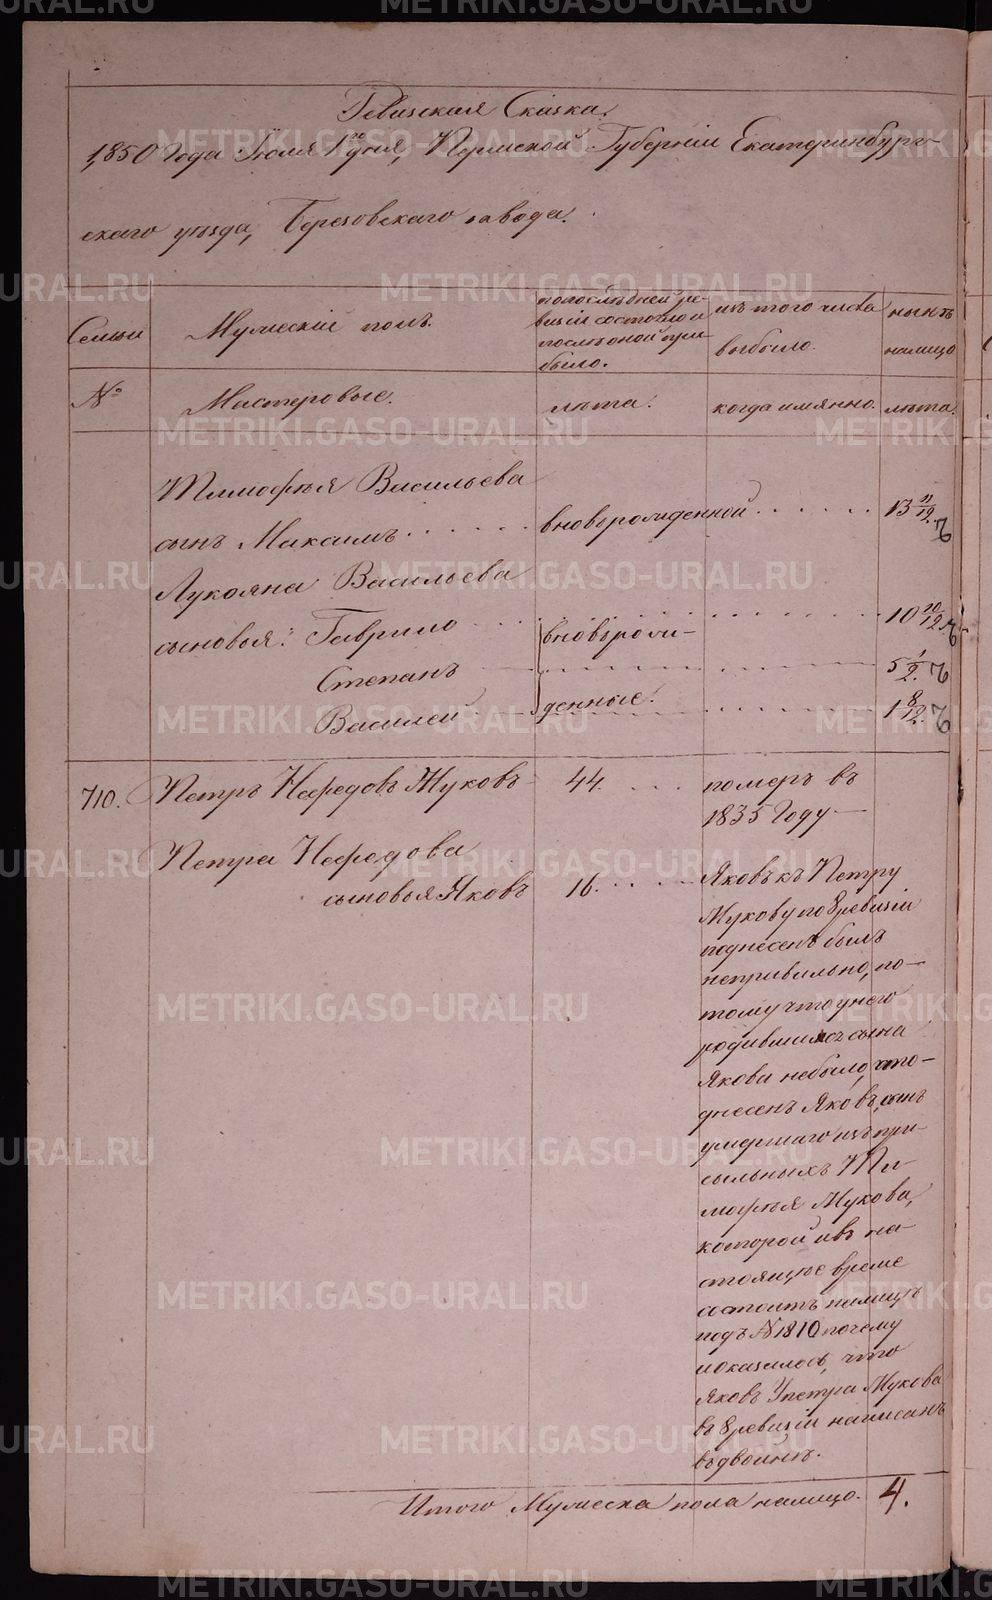 Ревизская Сказка.
1850 Года Июля 1го дня, Пермской Губерніи Екатеринбург-
скаго уѣзда, Березовскаго завода.
Семьи
Мужескій полъ.
попослѣдней ре-
визіи состояло и
послѣ оной при
было.
изъ того числа
выбыло.
нынѣ
налицо
№
Мастеровые.
лѣта.
когда имянно.
лѣта.
Тимофѣя Васильева
сынъ Максимъ
вноворожденной
13 11/12.
Лукояна Васильева
сыновья: Гаврило
вноворож-
10 10/12.
Степанъ
5 1/2.
Василей
денные.
1 8/12.
710.
Петръ Нефедовъ Жуковъ
44.
померъ въ
1835 Году
Петра Нефедова
сыновья Яковъ
16.
Яковъ къ Петру
Жукову по 8 ревизіи
поднесенъ былъ
неправильно, по-
тому что унего
родившимся сына
Якова небыло, апо-
днесенъ Яковъ, сынъ
умершаго изъ при-
сыльныхъ Ти-
мофѣя Жукова,
которой ивъ на-
стоящее время
состоитъ налицѣ
подъ №1810 почему
иоказалось, что
Яковъ Упетра Жукова
въ 8 ревизіи написанъ
вдвойнѣ.
Итого Мужеска пола налицо.
4.
METRIKI.GASO-URAL.RU